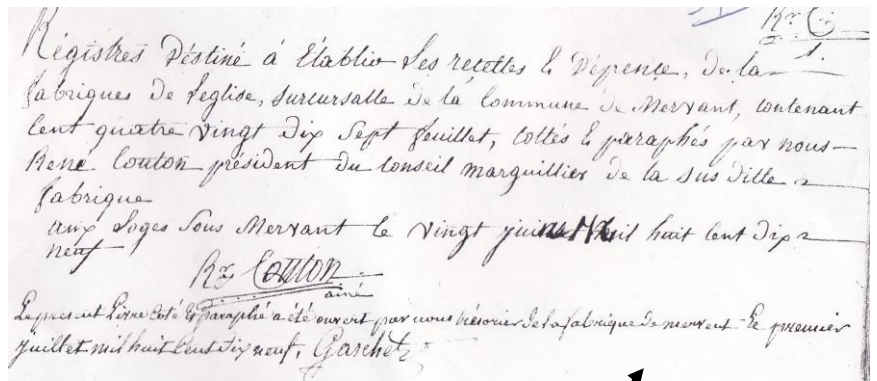 Rné C
1.
Régistres Déstiné á Etablir Les recettes & Dépence, de la
fabriques de Leglise, surcursalle de la Commune de Mervant, contenant
Cent quatre vingt dix sept feuillet, cottés & paraphés par nous
René Couton président du conseil marguillier de la sus ditte
fabrique
aux Loges sous Mervant le vingt juin mil huit cent dix
neuf
Rné Couton
ainé
Le present Livre coté & paraphé a été ouvert par nous trésorier de la fabrique de mervent Le premier
juillet mil huit cent dix neuf, Garchet